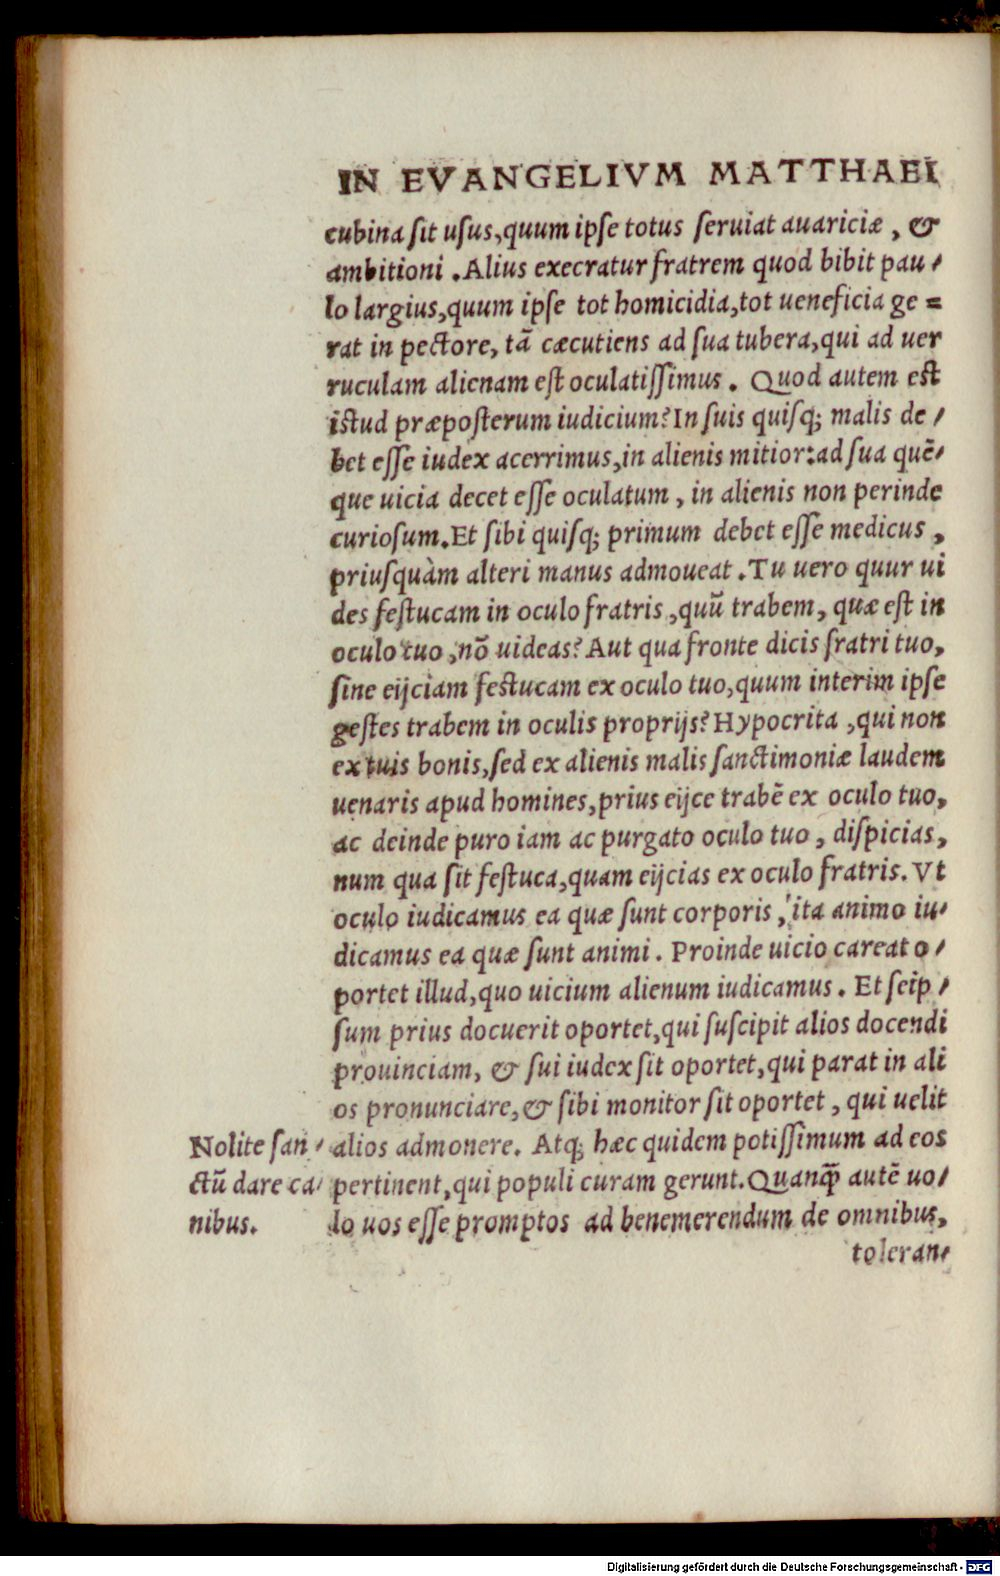 IN EVANGELIVM MATTHAEI
cubina sit usus,quum ipse totus seruiat auariciæ , &
ambitioni . Alius execratur fratrem quod bibit pau-
lo largius,quum ipse tot homicidia,tot ueneficia ge=
rat in pectore, tā cæcutiens ad sua tubera,qui ad uer
ruculam alienam est oculatissimus . Quod autem est
istud præposterum iudicium? In suis quisq; malis de-
bet esse iudex acerrimus,in alienis mitior:ad sua quē-
que uicia decet esse oculatum , in alienis non perinde
curiosum. Et sibi quisq; primum debet esse medicus ,
priusquàm alteri manus admoueat . Tu uero quur ui
des festucam in oculo fratris ,quū trabem, quæ est in
oculo tuo ,nō uideas? Aut qua fronte dicis fratri tuo,
sine eijciam festucam ex oculo tuo,quum interim ipse
gestes trabem in oculis proprijs? Hypocrita ,qui non
ex tuis bonis,sed ex alienis malis sanctimoniæ laudem
uenaris apud homines,prius eijce trabē ex oculo tuo,
ac deinde puro iam ac purgato oculo tuo , dispicias,
num qua sit festuca,quam eijcias ex oculo fratris. Vt
oculo iudicamus ea quæ sunt corporis , ita animo iu-
dicamus ea quæ sunt animi . Proinde uicio careat o-
portet illud,quo uicium alienum iudicamus . Et seip-
sum prius docuerit oportet,qui suscipit alios docendi
prouinciam, & sui iudex sit oportet,qui parat in ali
os pronunciare,& sibi monitor sit oportet , qui uelit
alios admonere. Atq; hæc quidem potissimum ad eos
pertinent,qui populi curam gerunt. Quanq̃ autē uo-
lo uos esse promptos ad benemerendum de omnibus,
toleran-
Nolite san-
ctū dare ca-
nibus.
Digitalisierung gefördert durch die Deutsche Forschungsgemeinschaft - DFG